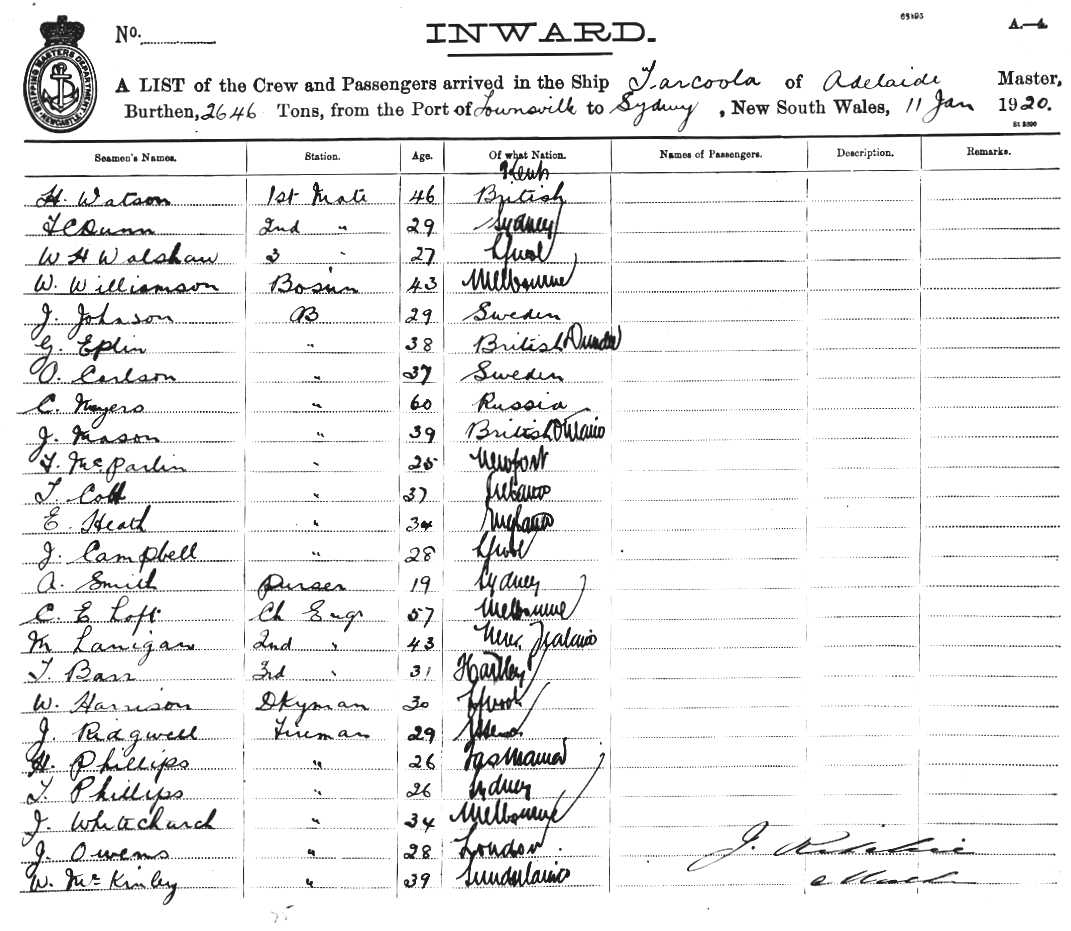 No.
INWARD.
A.—4.
SHIPPING MASTERS DEPARTMENT NEWCASTLE
A LIST of the Crew and Passengers arrived in the Ship Tarcoola of Adelaide Master,
Burthen, 2646 Tons, from the Port of Townsville to Sydney, New South Wales, 11 Jan 1920.
Seamen's Names. Station. Age. Of what Nation. Names of Passengers. Description. Remarks.
H. Watson 1st Mate 46 British
F C Dunn 2nd " 29 Sydney
W H Walshaw 3 " 27 L'pool
W. Williamson Bosun 43 Melbourne
J. Johnson AB 29 Sweden
G. Eplin " 38 British Dundee
O. Carlson " 37 Sweden
C. Meyers " 60 Russia
J. Mason " 39 British Ontario
F. McParlin " 25 Newport
T. Cobb " 37 Ireland
E. Heath " 34 England
J. Campbell " 28 L'pool
A. Smith Purser 19 Sydney
C. E Loft Ch Engr 57 Melbourne
M Lanigan 2nd " 43 New Zealand
T. Barr 3rd " 31 Hartley
W. Harrison Dkyman 30 L'pool
J. Ridgwell Fireman 29
H. Phillips " 26 Tasmania
T. Phillips " 26 Sydney
J. Whitechurch " 34 Melbourne
J. Owens " 28 London
J. Ritchie
W. McKinley " 39 Sunderland